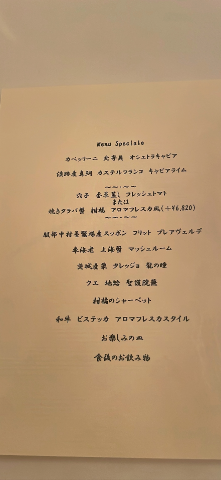 Menu Speciale
カペッリーニ 北寄貝 オシェトラキャビア
淡路産真鯛 カステルフランコ キャビアライム
～～・～～
穴子 香茶蒸し フレッシュトマト
または
焼きタラバ蟹 柑橘 アロマフレスカ風(+¥6,820)
～～・～～
服部中村養鼈場産スッポン フリット プレアヴェルデ
車海老 上海蟹 マッシュルーム
茨城産栗 タレッジョ 龍の瞳
クエ 地蛤 聖護院蕪
柑橘のシャーベット
和牛 ビステッカ アロマフレスカスタイル
お楽しみの皿
食後のお飲み物